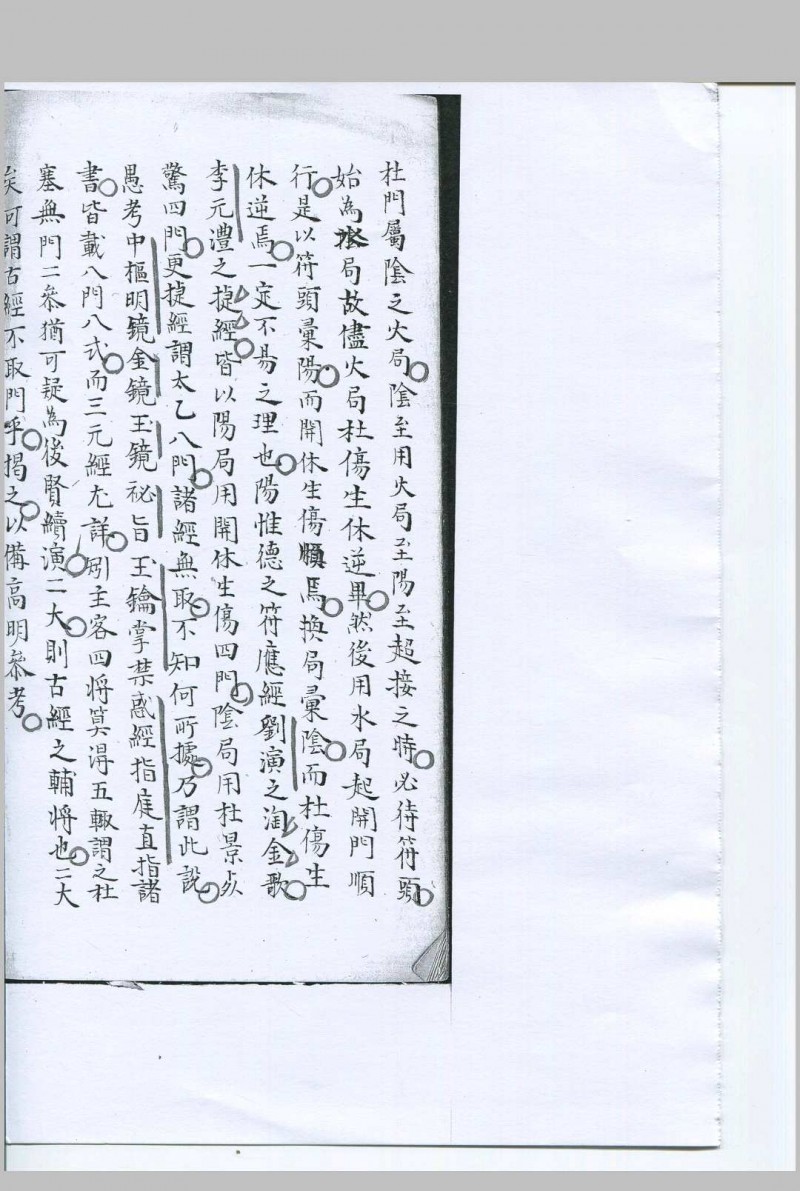 杜門屬陰之火局陰至用火局至陽至超接之時必待符頭
始為水局故儘火局杜傷生休逆畢然後用水局起開門順
行是以符頭彙陽而開休生傷順焉換局彙陰而杜傷生
休逆焉一定不易之理也陽惟德之符應經劉演之淘金歌
李元澧之捷經皆以陽局用開休生傷四門陰局用杜景死
驚四門更捷經謂太乙八門諸經無取不知何所據乃謂此說
愚考中樞明鏡金鏡玉鏡祕旨玉鑰掌禁惑經指庭直指諸
書皆載八門八式而三元經尤詳別主客四將筭得五輙謂之杜
塞無門二叅猶可疑為後賢續演二大則古經之輔將也二大
矣可謂古經不取門乎揭之以備高明叅考